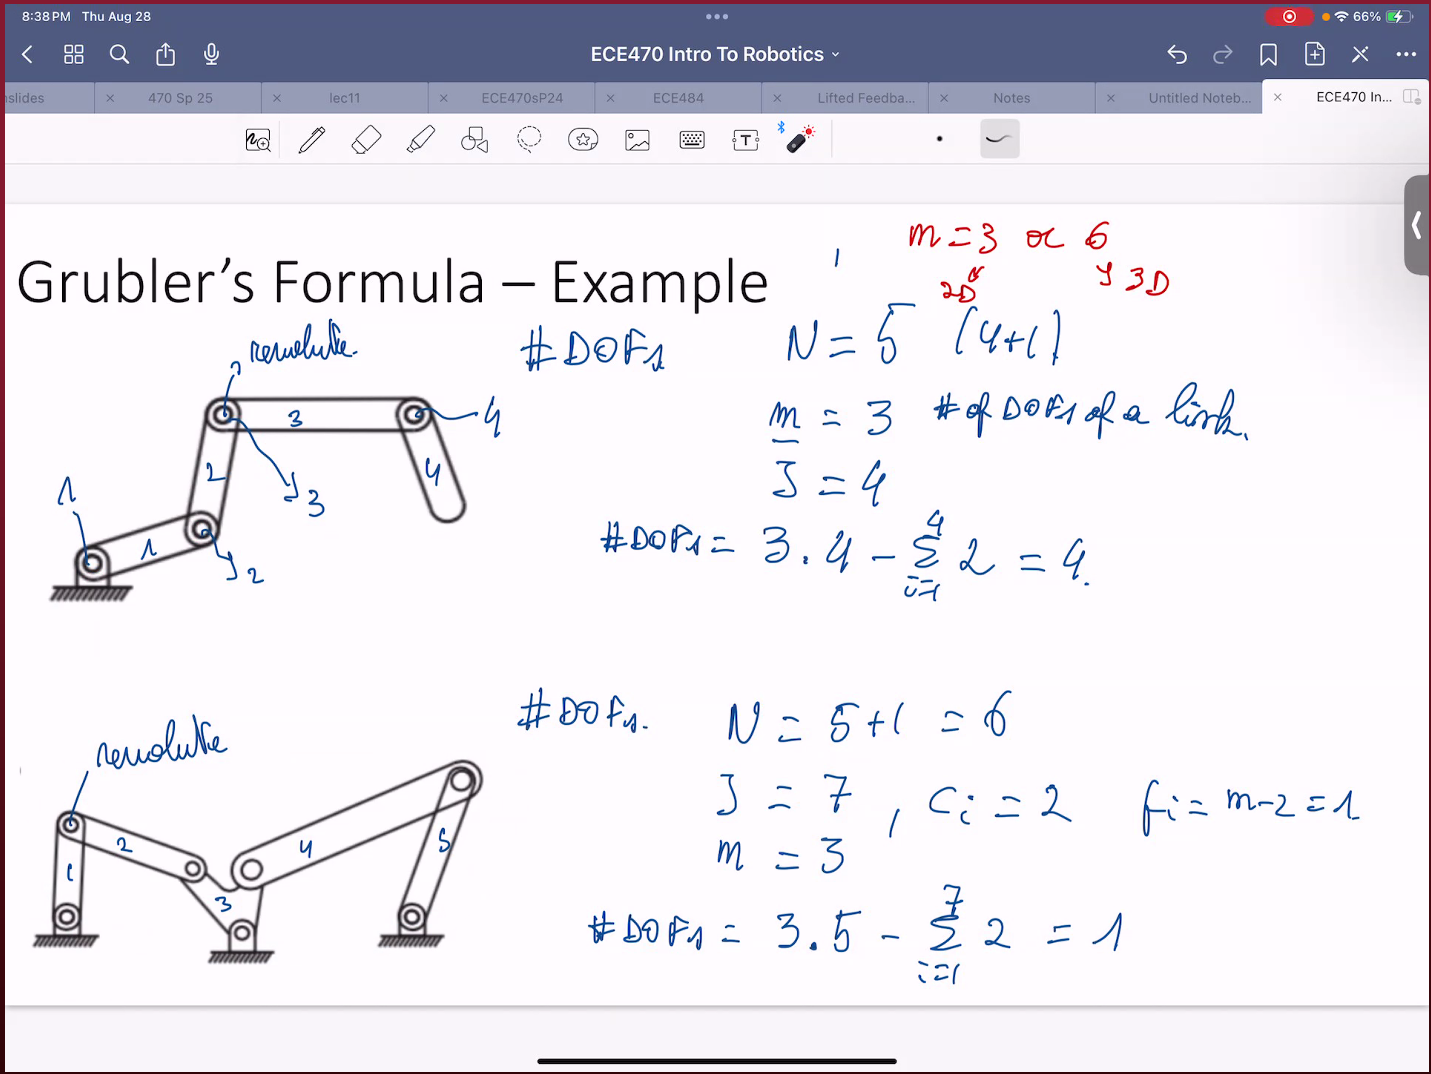 8:38 PM Thu Aug 28
66%
ECE470 Intro To Robotics
nslides
470 Sp 25
lec11
ECE470sP24
ECE484
Lifted Feedba...
Notes
Untitled Noteb...
ECE470 In...
m = 3 or 6
2D
3D
Grubler's Formula – Example
revolute.
#DOFs
N = 5 (4+1)
m = 3 # of DOFs of a link.
J = 4
#DOFs = 3.4 - 4 Σ i=1 2 = 4.
1
2
3
4
1
2
3
4
#DOFs.
N = 5+1 = 6
revolute
J = 7, Ci = 2 fi = m-2 = 1
m = 3
#DOFs = 3.5 - 7 Σ i=1 2 = 1
1
2
3
4
5